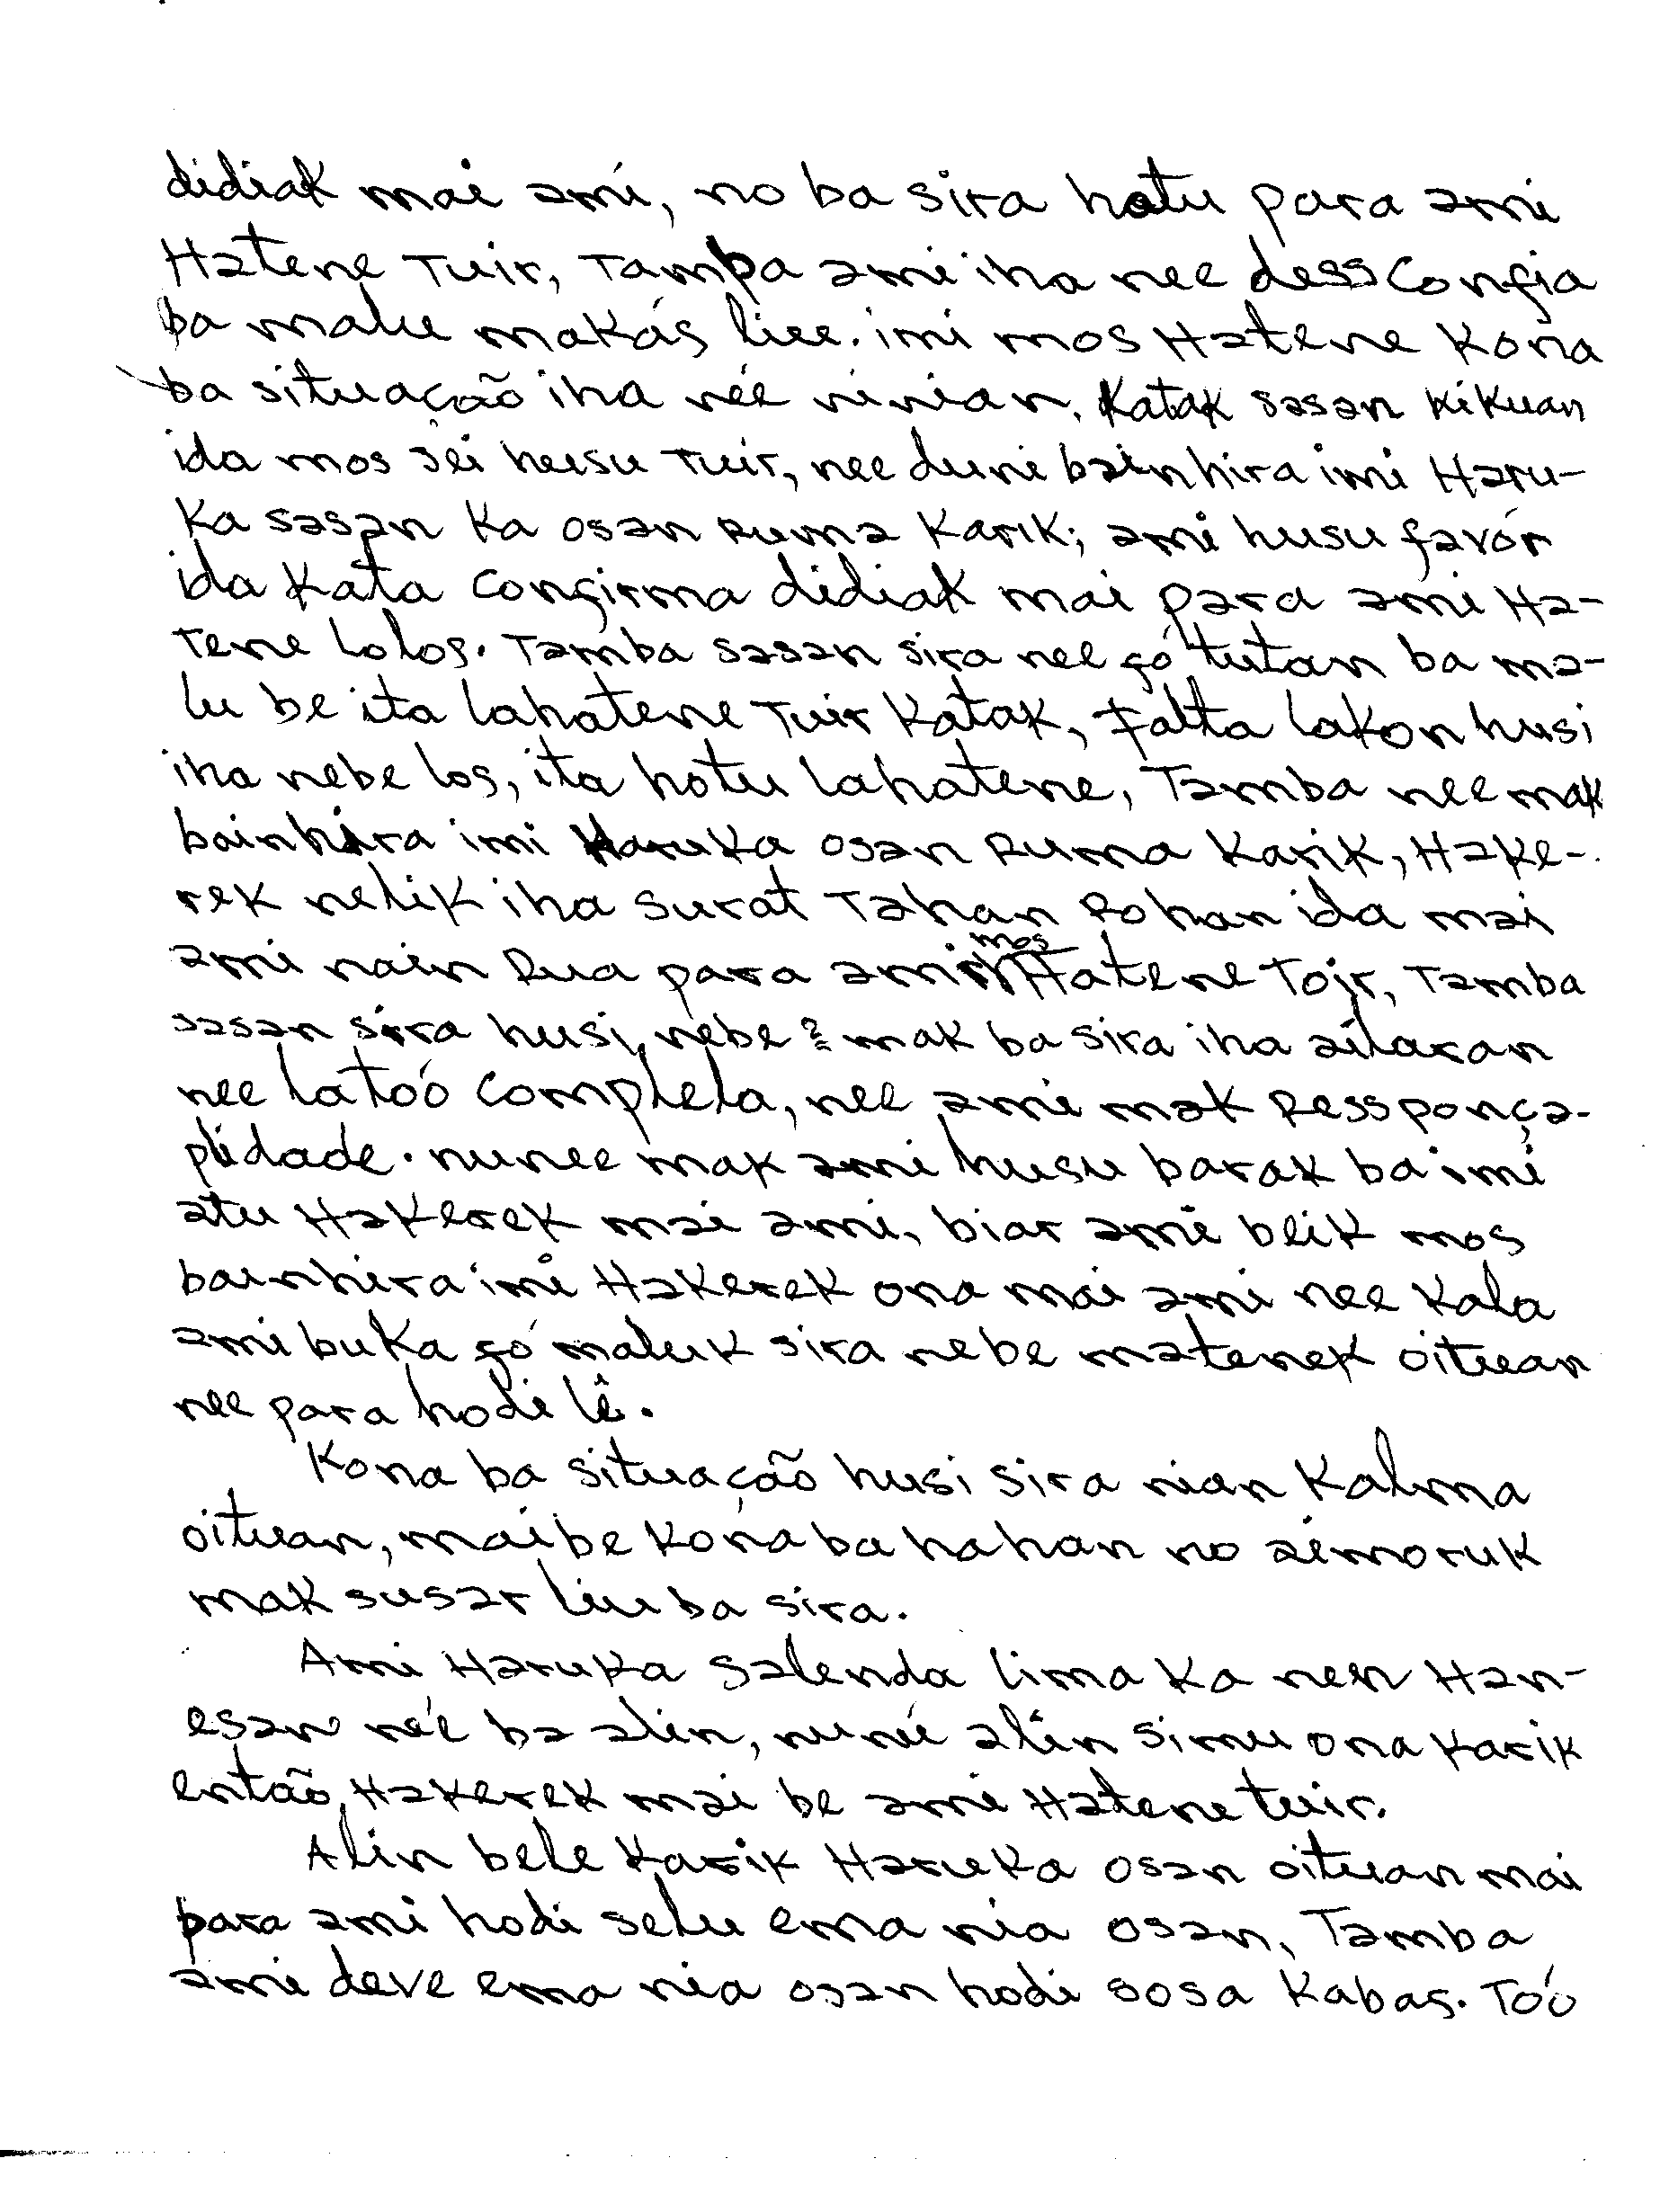 didiak mai ami, no ba sira hotu para ami
Hatene Tuir, Tamba ami iha nee dessConfia
ba malu makás liu. imi mos Hatene Kona
ba situação iha néé ninian, Katak sasan kikuan
ida mos sei husu Tuir, nee duni bainhira imi Haru-
Ka sasan Ka osan Ruma Karik; ami husu favór
ida Kata Confirma didiak mai para ami Ha-
Tene Lolos. Tamba sasan sira nee fó tutan ba ma-
lu be ita lahatene Tuir Katak, falta lakon husi
iha nebe los, ita hotu lahatene, Tamba nee mak
bainhira imi Haruka osan Ruma Karik, Hake-
rek nelik iha surat Tahan Rohan ida mai
ami nain Rua para ami mos Hatene Toir, Tamba
sasan sira husi nebe? mak ba sira iha ailaran
nee latóó Completa, nee ami mak Ressponça-
plidade. nunee mak ami husu barak ba imi
atu Hakerek mai ami, biar ami beik mos
bainhira imi Hakerek ona mai ami nee Kala
ami buka fó maluk sira nebe matenek oituan
nee para hodi lê.
Kona ba situação husi sira nian Kalma
oituan, maibe Kona ba hahan no aimoruk
mak susar liu ba sira.
Ami Haruka salenda lima Ka nen Han-
esan néé ba alin, nunéé alin simu ona Karik
então, Hakerek mai be ami Hatene tuir.
Alin bele Karik Haruka osan oituan mai
para ami hodi selu ema nia osan, Tamba
ami deve ema nia osan hodi sosa Kabas. Tóó